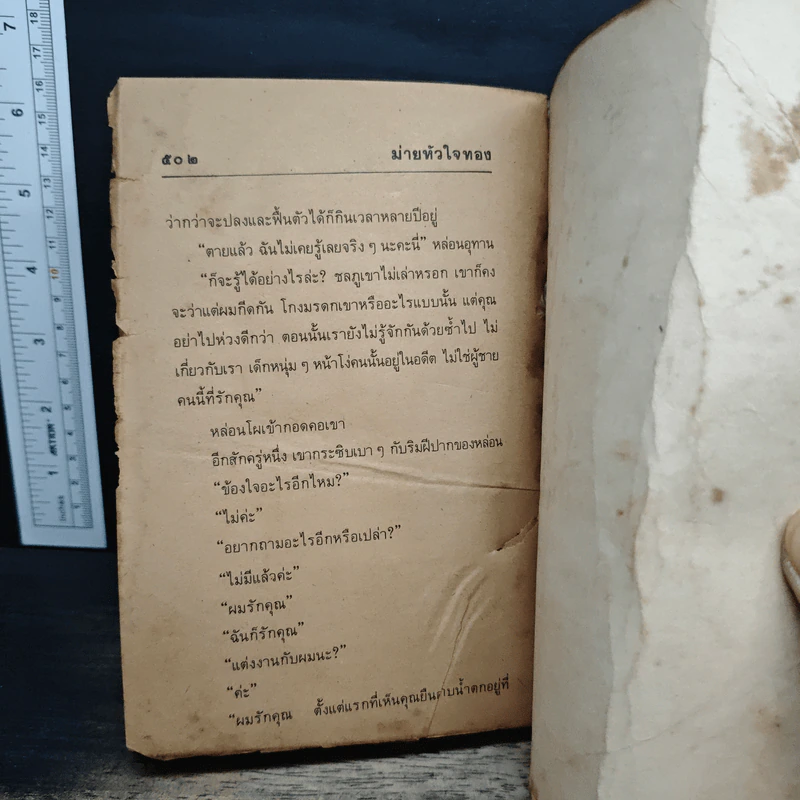 ๕๐๒ ม่ายหัวใจทอง
ว่ากว่าจะปลงและฟื้นตัวได้ก็กินเวลาหลายปีอยู่
“ตายแล้ว ฉันไม่เคยรู้เลยจริง ๆ นะคะนี่” หล่อนอุทาน
“ก็จะรู้ได้อย่างไรล่ะ? ชลภูเขาไม่เล่าหรอก เขาก็คง
จะว่าแต่ผมกีดกัน โกงมรดกเขาหรืออะไรแบบนั้น แต่คุณ
อย่าไปห่วงดีกว่า ตอนนั้นเรายังไม่รู้จักกันด้วยซ้ำไป ไม่
เกี่ยวกับเรา เด็กหนุ่ม ๆ หน้าโง่คนนั้นอยู่ในอดีต ไม่ใช่ผู้ชาย
คนนี้ที่รักคุณ”
หล่อนโผเข้ากอดคอเขา
อีกสักครู่หนึ่ง เขากระซิบเบา ๆ กับริมฝีปากของหล่อน
“ข้องใจอะไรอีกไหม?”
“ไม่ค่ะ”
“อยากถามอะไรอีกหรือเปล่า?”
“ไม่มีแล้วค่ะ”
“ผมรักคุณ”
“ฉันก็รักคุณ”
“แต่งงานกับผมนะ?”
“ค่ะ”
“ผมรักคุณ ตั้งแต่แรกที่เห็นคุณยืนอาบน้ำตกอยู่ที่
7
6
5
4
3
2
1
inches
18
17
16
15
14
13
12
11
10
9
8
7
6
5
4
3
2
1